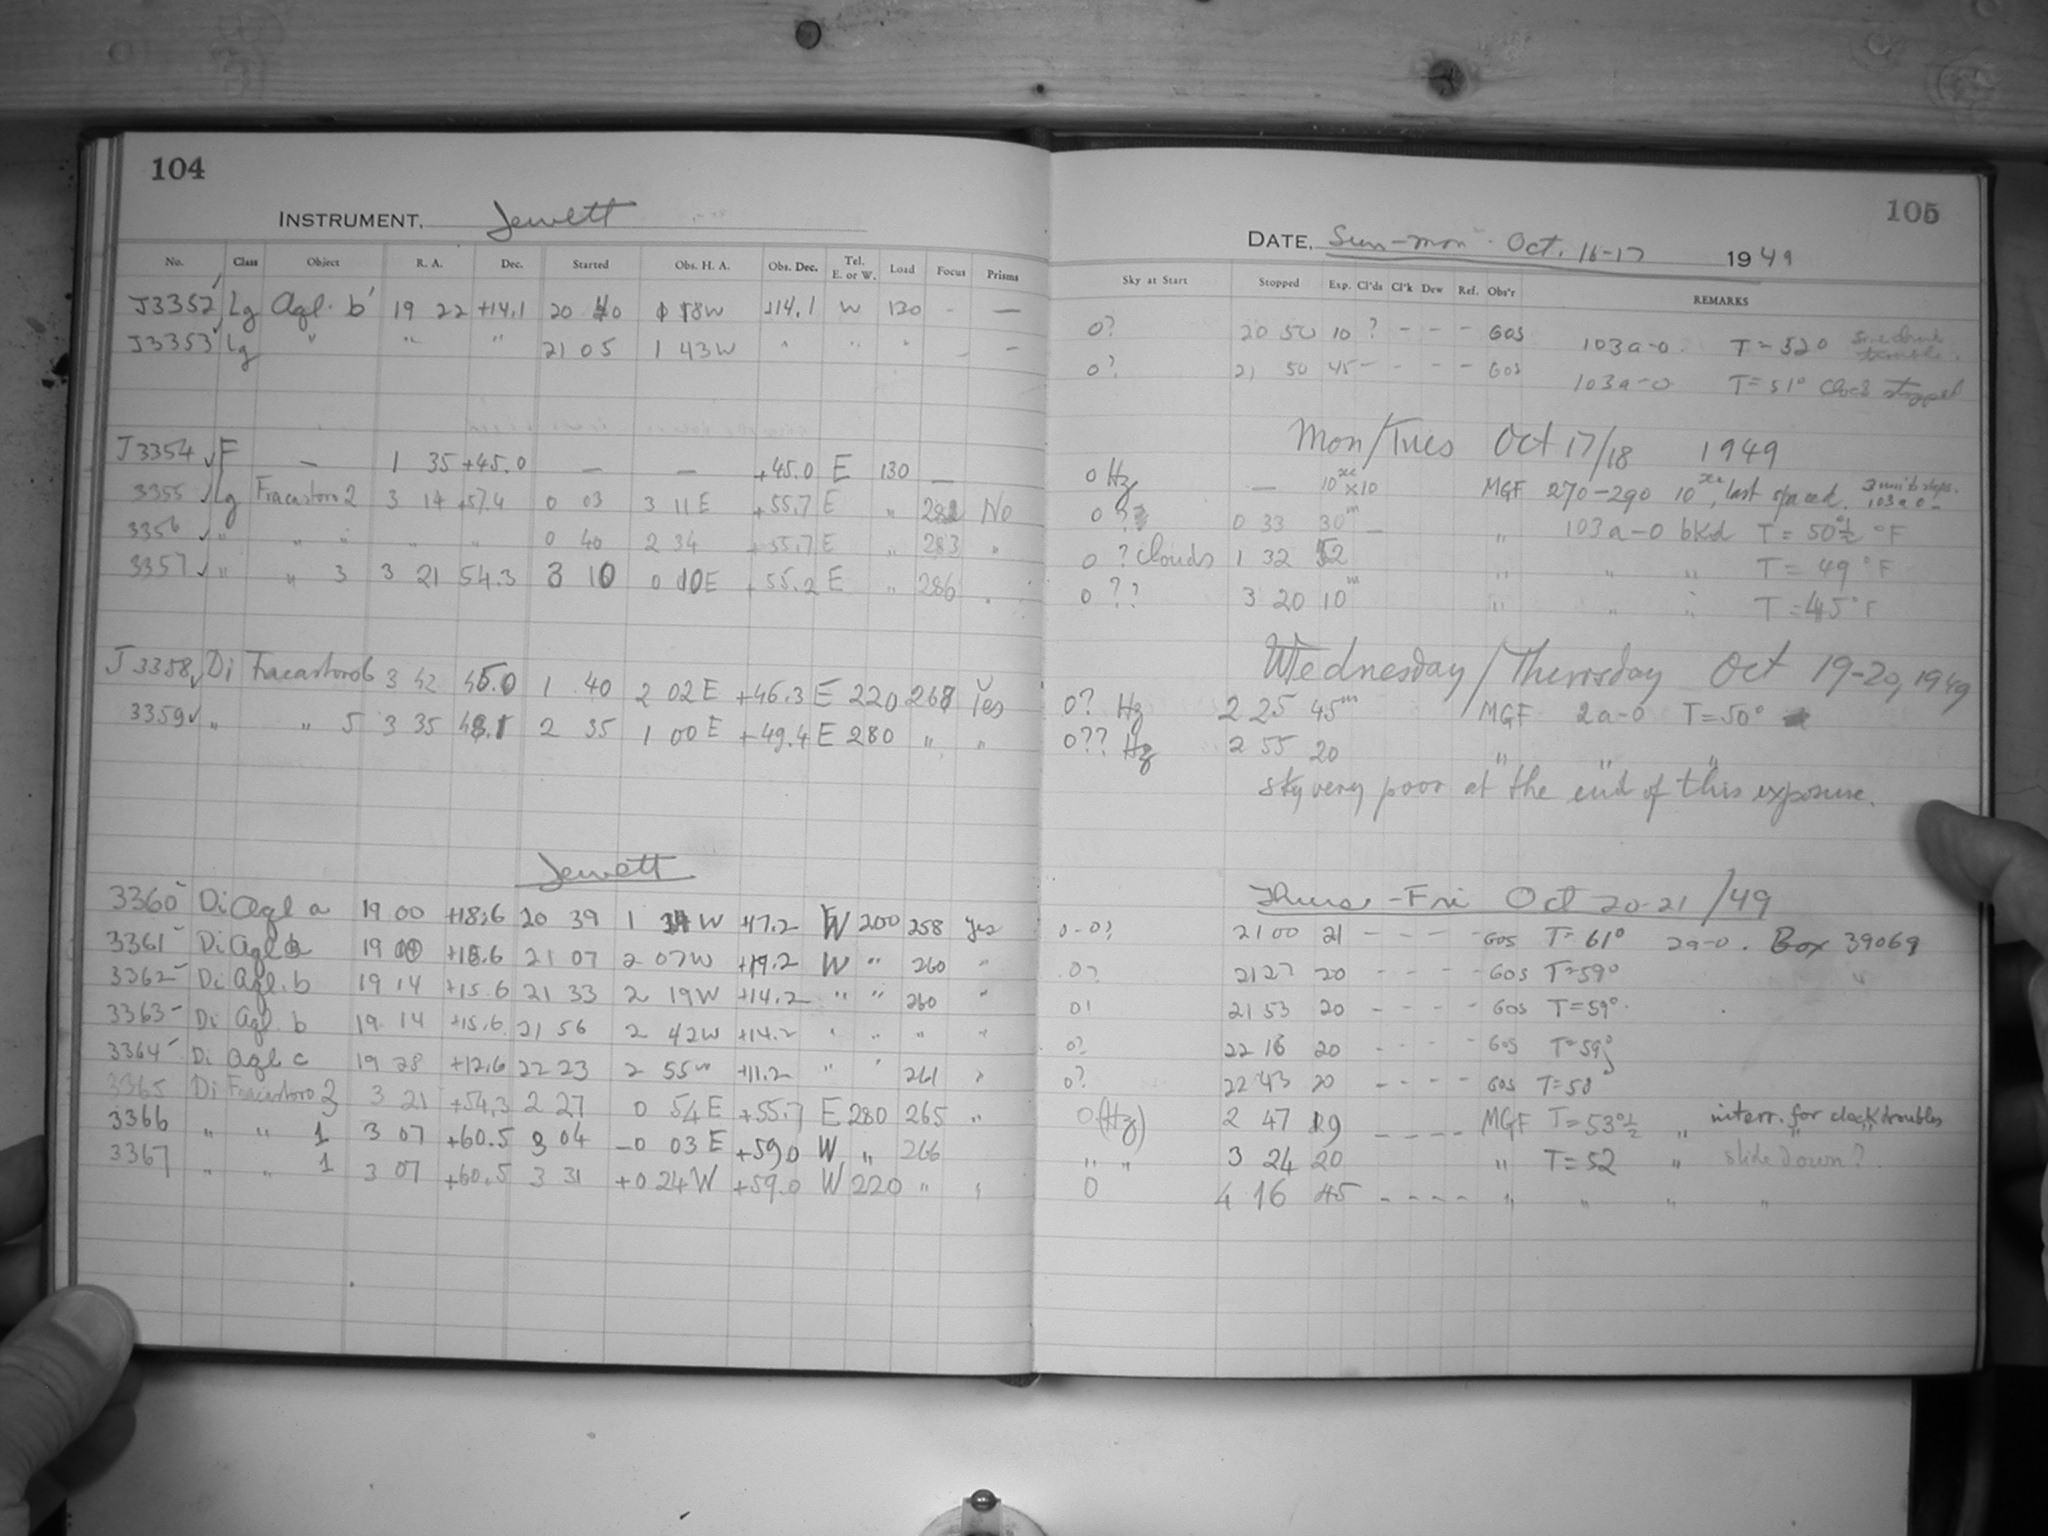 104
INSTRUMENT. Jewett
No. Class Object R. A. Dec. Started Obs. H. A. Obs. Dec. Tel. E. or W. Load Focus Prisms
J3352 Lg Aql. b 19 22 +14.1 20 40 1 18W +14.1 W 130 - —
J3353 Lg " " " 21 05 1 43W " " " - —
J3354 F — 1 35 +45.0 — — +45.0 E 130 —
3355 Lg Fracastoro 2 3 14 +57.4 0 03 3 11 E +55.7 E " 282 No
3356 " " " " " 0 40 2 34 +55.7 E " 283 "
3357 " " 3 3 21 54.3 3 10 0 10E +55.2 E " 286 "
J3358 Di Fracastoro 6 3 42 45.0 1 40 2 02 E +46.3 E 220 268 Yes
3359 " " 5 3 35 48.1 2 35 1 00 E +49.4 E 280 " "
Jewett
3360 Di Aql a 19 00 +18.6 20 39 1 W +17.2 W 200 258 Yes
3361 Di Aql a 19 00 +18.6 21 07 2 07W +19.2 W " 260 "
3362 Di Aql. b 19 14 +15.6 21 33 2 19W +14.2 " " 260 "
3363 Di Aql. b 19 14 +15.6 21 56 2 42W +14.2 " " " "
3364 Di Aql c 19 28 +12.6 22 23 2 55W +11.2 " " 261 "
3365 Di Fracastoro 3 3 21 +54.3 2 27 0 54 E +55.7 E 280 265 "
3366 " " 1 3 07 +60.5 3 04 -0 03 E +59.0 W " 266
3367 " " 1 3 07 +60.5 3 31 +0 24W +59.0 W 220 " "
105
DATE, Sun-Mon. Oct. 16-17 1949
Sky at Start Stopped Exp. Cl'ds Cl'k Dew Ref. Obs'r REMARKS
0? 20 50 10 ? - - - GOS 103a-O. T=52° trouble.
0? 21 50 45 - - - - GOS 103a-O T=51° Clock stopped
Mon/Tues Oct 17/18 1949
0 Hz — 10 x10 MGF 270-290 10, last spaced. 103a O
0 ?? 0 33 30m — " 103a-O bkd T = 50½ °F
0 ? clouds 1 32 52 " " " T = 49 °F
0 ?? 3 20 10m " " " T = 45°F
Wednesday/Thursday Oct 19-20, 1949
0? Hz 2 25 45m MGF 2a-O T=50°
0?? Hz 2 55 20 " " "
Sky very poor at the end of this exposure.
Thurs-Fri Oct 20-21/49
0-0? 21 00 21 - - - - GOS T=61° 2a-O. Box 39069
0? 21 27 20 - - - - GOS T=59° "
0! 21 53 20 - - - - GOS T=59°
0? 22 16 20 - - - - GOS T=59°
0? 22 43 20 - - - - GOS T=58
0(Hz) 2 47 19 - - - - MGF T=53°½ " interr. for clock troubles
" " 3 24 20 " T=52 " slide down?
0 4 16 45 - - - - " " " "